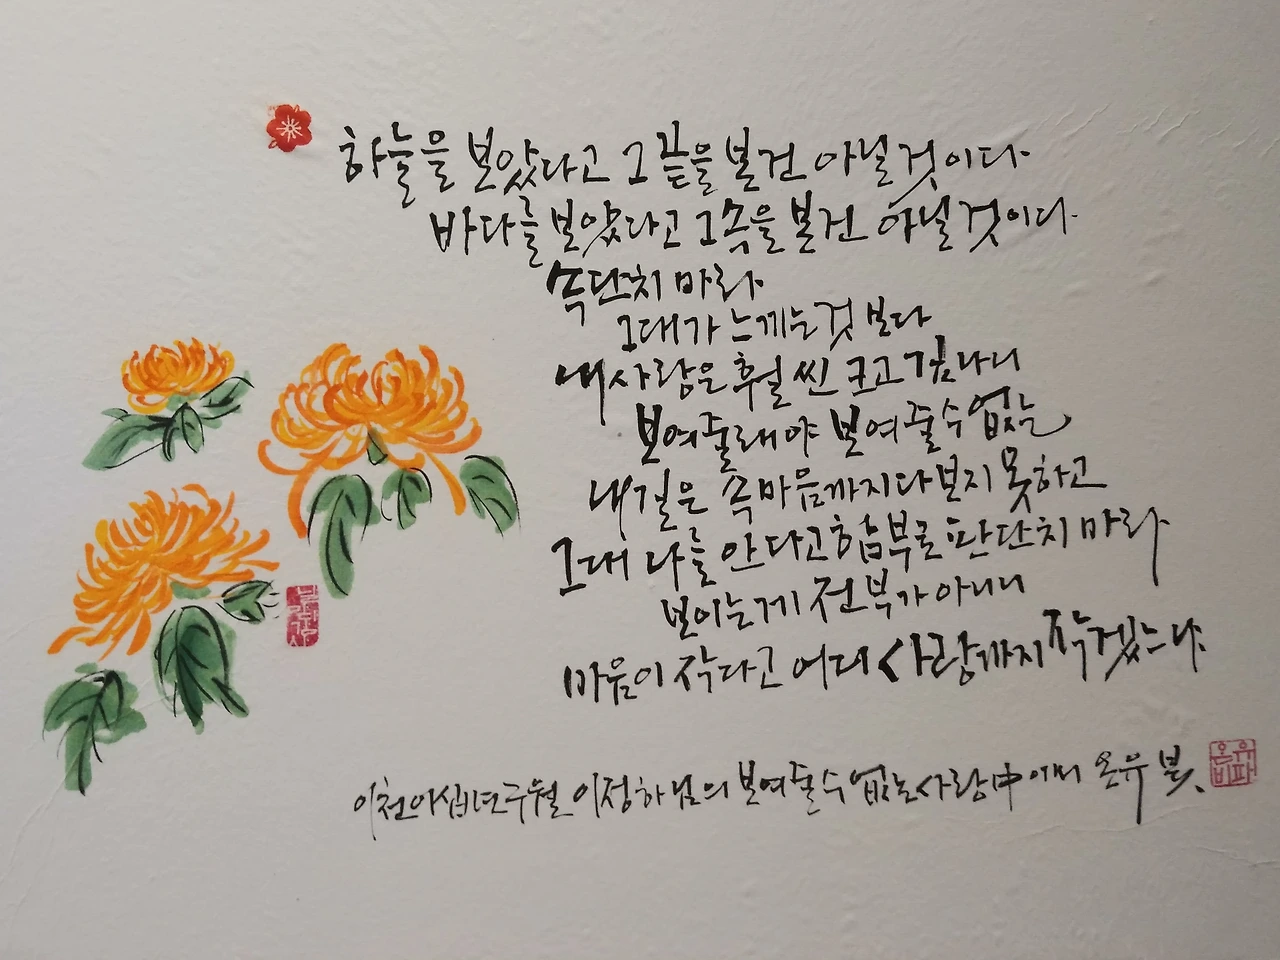 하늘을 보았다고 그 끝을 본건 아닐것이다
바다를 보았다고 그속을 본건 아닐것이다
속단치 마라
그대가 느끼는것 보다
내사랑은 훨씬 크고 깊나니
보여줄래야 보여줄수없는
내 깊은 속마음까지다보지 못하고
그대 나를 안다고함부로 판단치 마라
보이는게 전부가 아니니
마음이 작다고 어디 사랑까지 작겠느냐
이천이십년구월 이정하님의 보여줄수 없는사랑中에서 온유 붓
온유